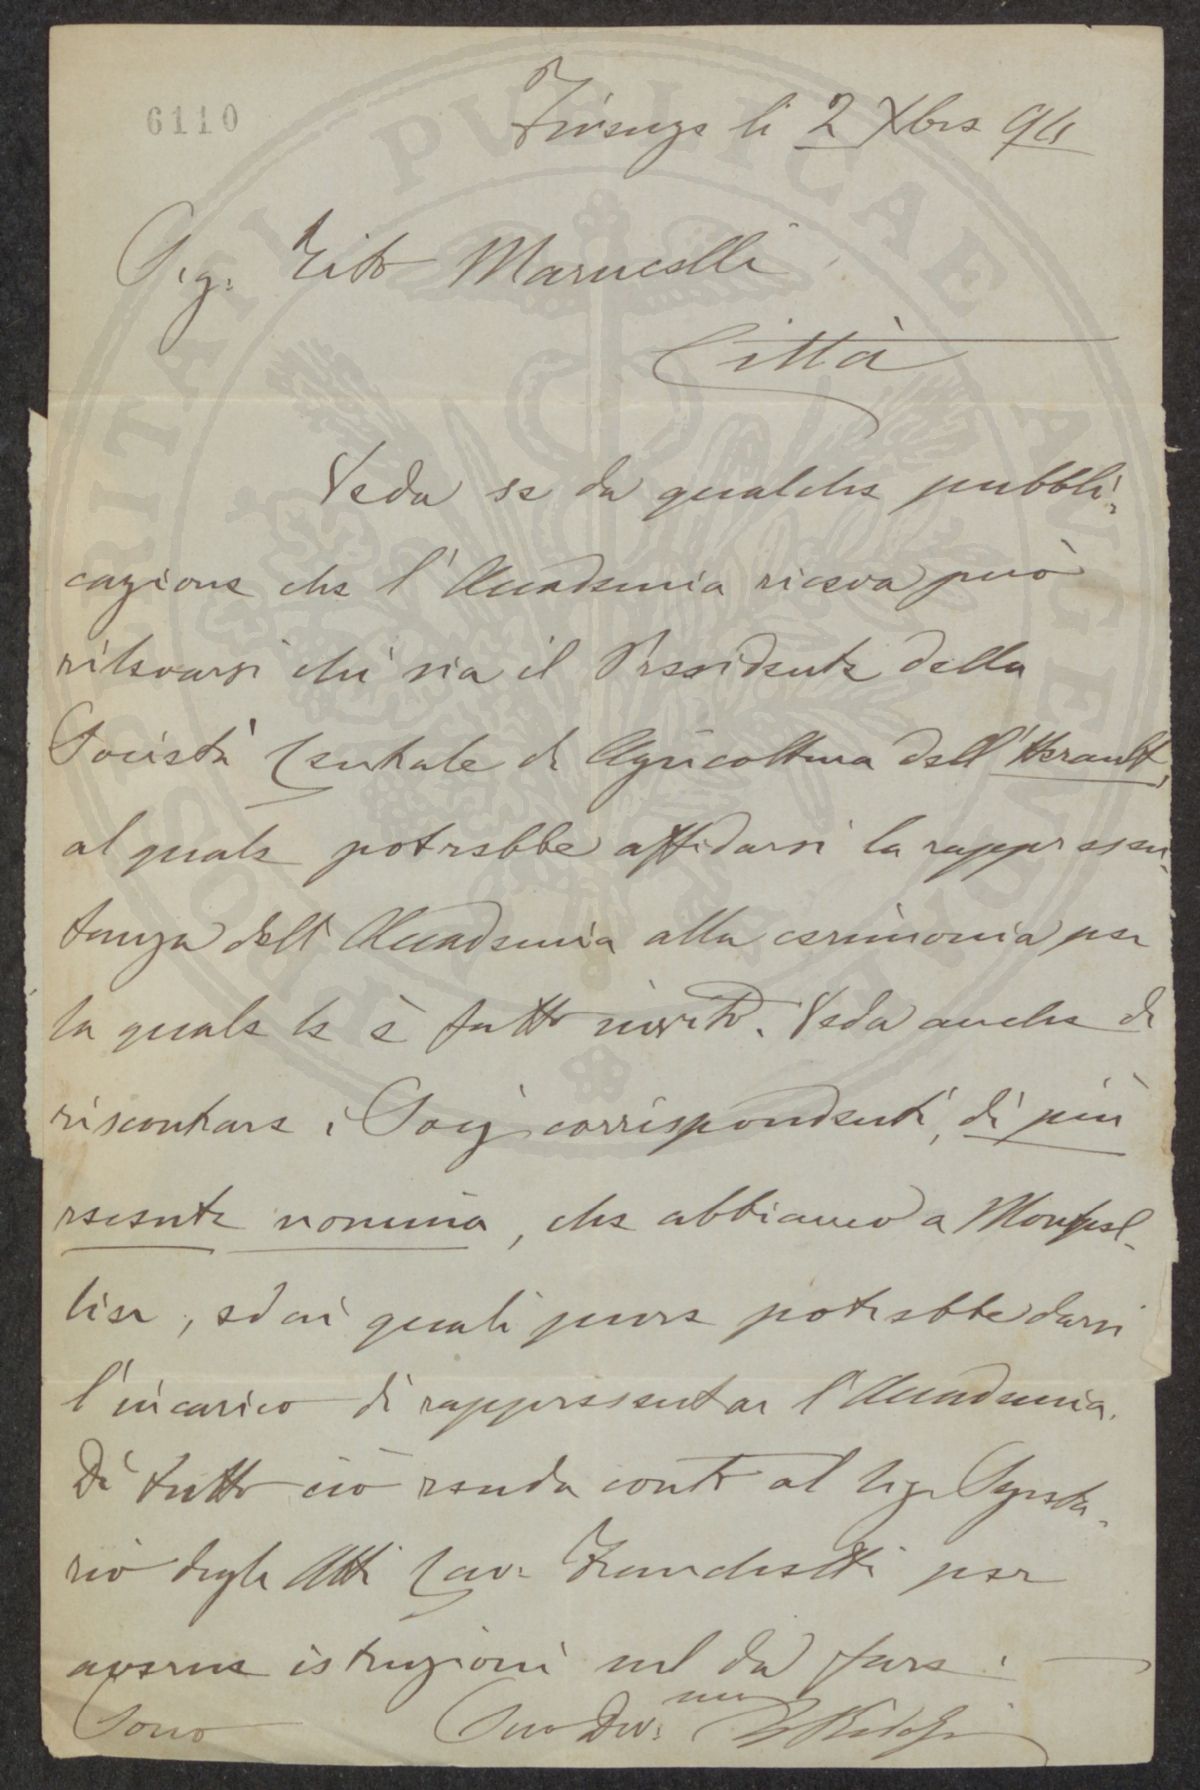 6110
Firenze li 2 Xbre 94
Sig. Tito Marucelli
Città
Veda se da qualche pubbli-
cazione che l'Accademia riceva può
rilevarsi chi sia il Presidente della
Società Centrale di Agricoltura dell'Herault,
al quale potrebbe affidarsi la rappresen-
tanza dell'Accademia alla cerimonia per
la quale le è fatto invito. Veda anche di
riscontrare i Socj corrispondenti, di più
recente nomina, che abbiamo a Monpel-
lier, ed ai quali pure potrebbe darsi
l'incarico di rappresentar l'Accademia.
Di tutto ciò renda conto al Sig. Segreta-
rio degli Atti Cav. Franchetti per
averne istruzioni sul da fare.
Sono Suo Dev.mo L Ridolfi